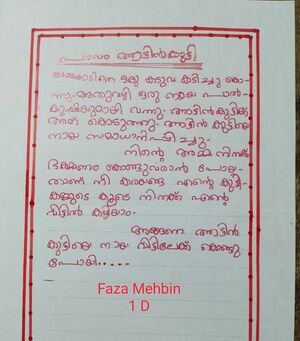 പാവം ആട്ടിൻകുട്ടി
അമ്മയാടിനെ ഒരു കടുവ കടിച്ചു കൊ
ന്നു. അതുവഴി ഒരു നായ പാൽ
ക്കുപ്പിയുമായി വന്നു. ആട്ടിൻകുട്ടിക്ക്
അത് കൊടുത്തു. ആട്ടിൻ കുട്ടിയെ
നായ സമാധാനിപ്പിച്ചു.
നിന്റെ അമ്മ നിനക്ക്
ഭക്ഷണം കൊണ്ടുവരാൻ പോയ
താണ് നീ കരയണ്ട എന്റെ കുട്ടി
കളുടെ കൂടെ നിനക്ക് എന്റെ
വീട്ടിൽ കഴിയാം.
അങ്ങനെ ആട്ടിൻ
കുട്ടിയെ നായ വീട്ടിലേക്ക് കൊണ്ടു
പോയി.....
Faza Mehbin
1 D